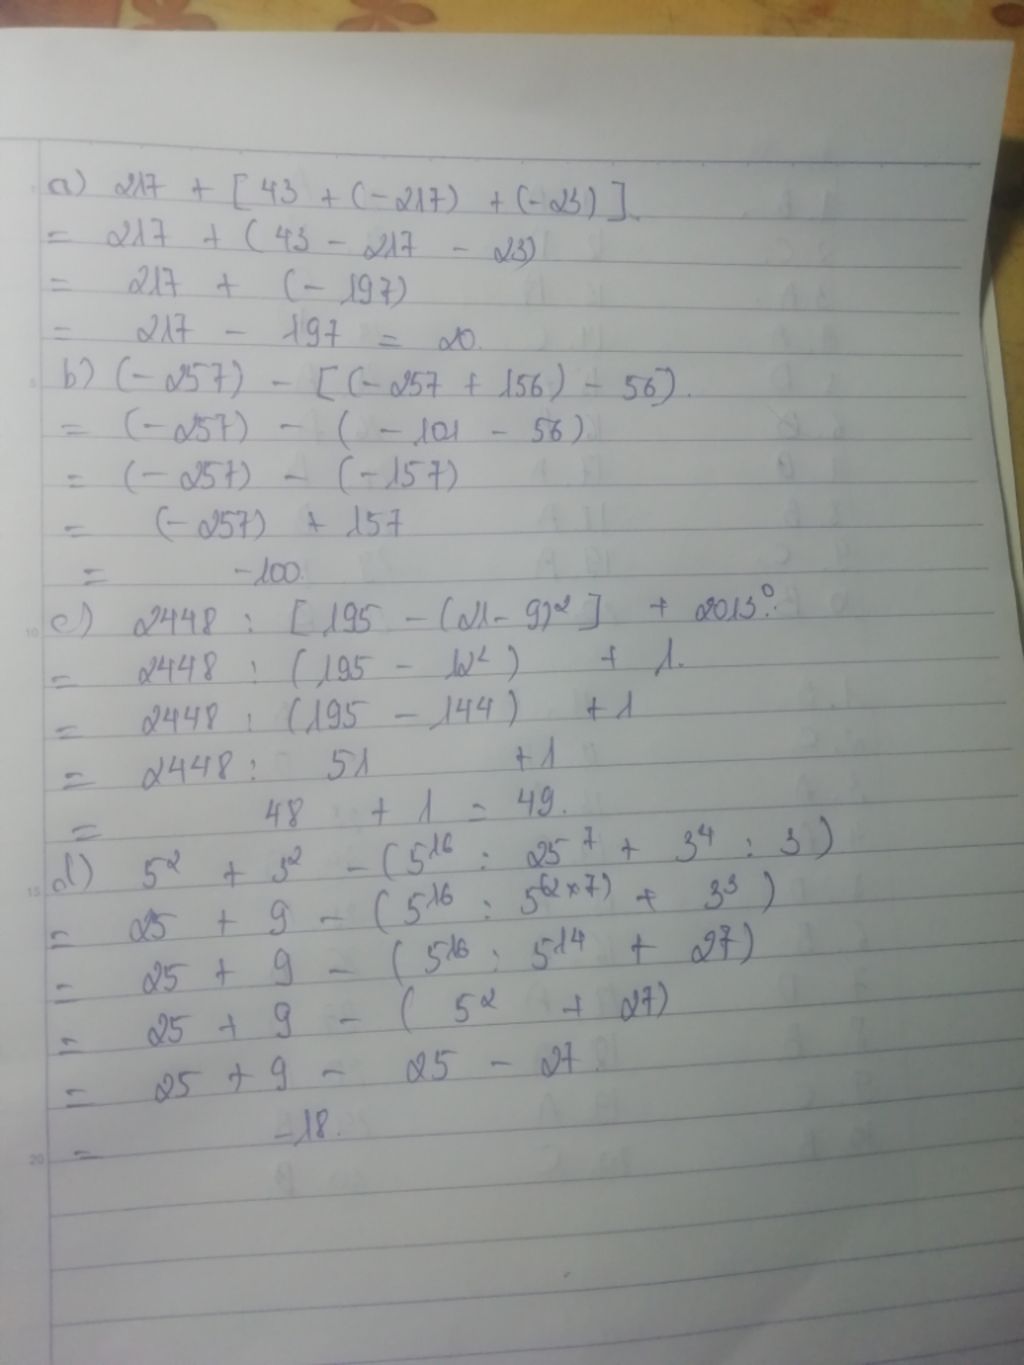 a) 217 + [43 + (-217) + (-23)].
= 217 + (43 - 217 - 23)
= 217 + (-197)
= 217 - 197 = 20.
b) (-257) - [(-257 + 156) - 56].
= (-257) - (-101 - 56)
= (-257) - (-157)
= (-257) + 157
= -100.
c) 2448 : [195 - (21 - 9)² ] + 2013⁰.
= 2448 : (195 - 12²) + 1.
= 2448 : (195 - 144) + 1
= 2448 : 51 + 1
= 48 + 1 = 49.
d) 5² + 3² - (5¹⁶ : 25⁷ + 3⁴ : 3)
= 25 + 9 - (5¹⁶ : 5⁽²ˣ⁷⁾ + 3³)
= 25 + 9 - (5¹⁶ : 5¹⁴ + 27)
= 25 + 9 - (5² + 27)
= 25 + 9 - 25 - 27.
= -18.